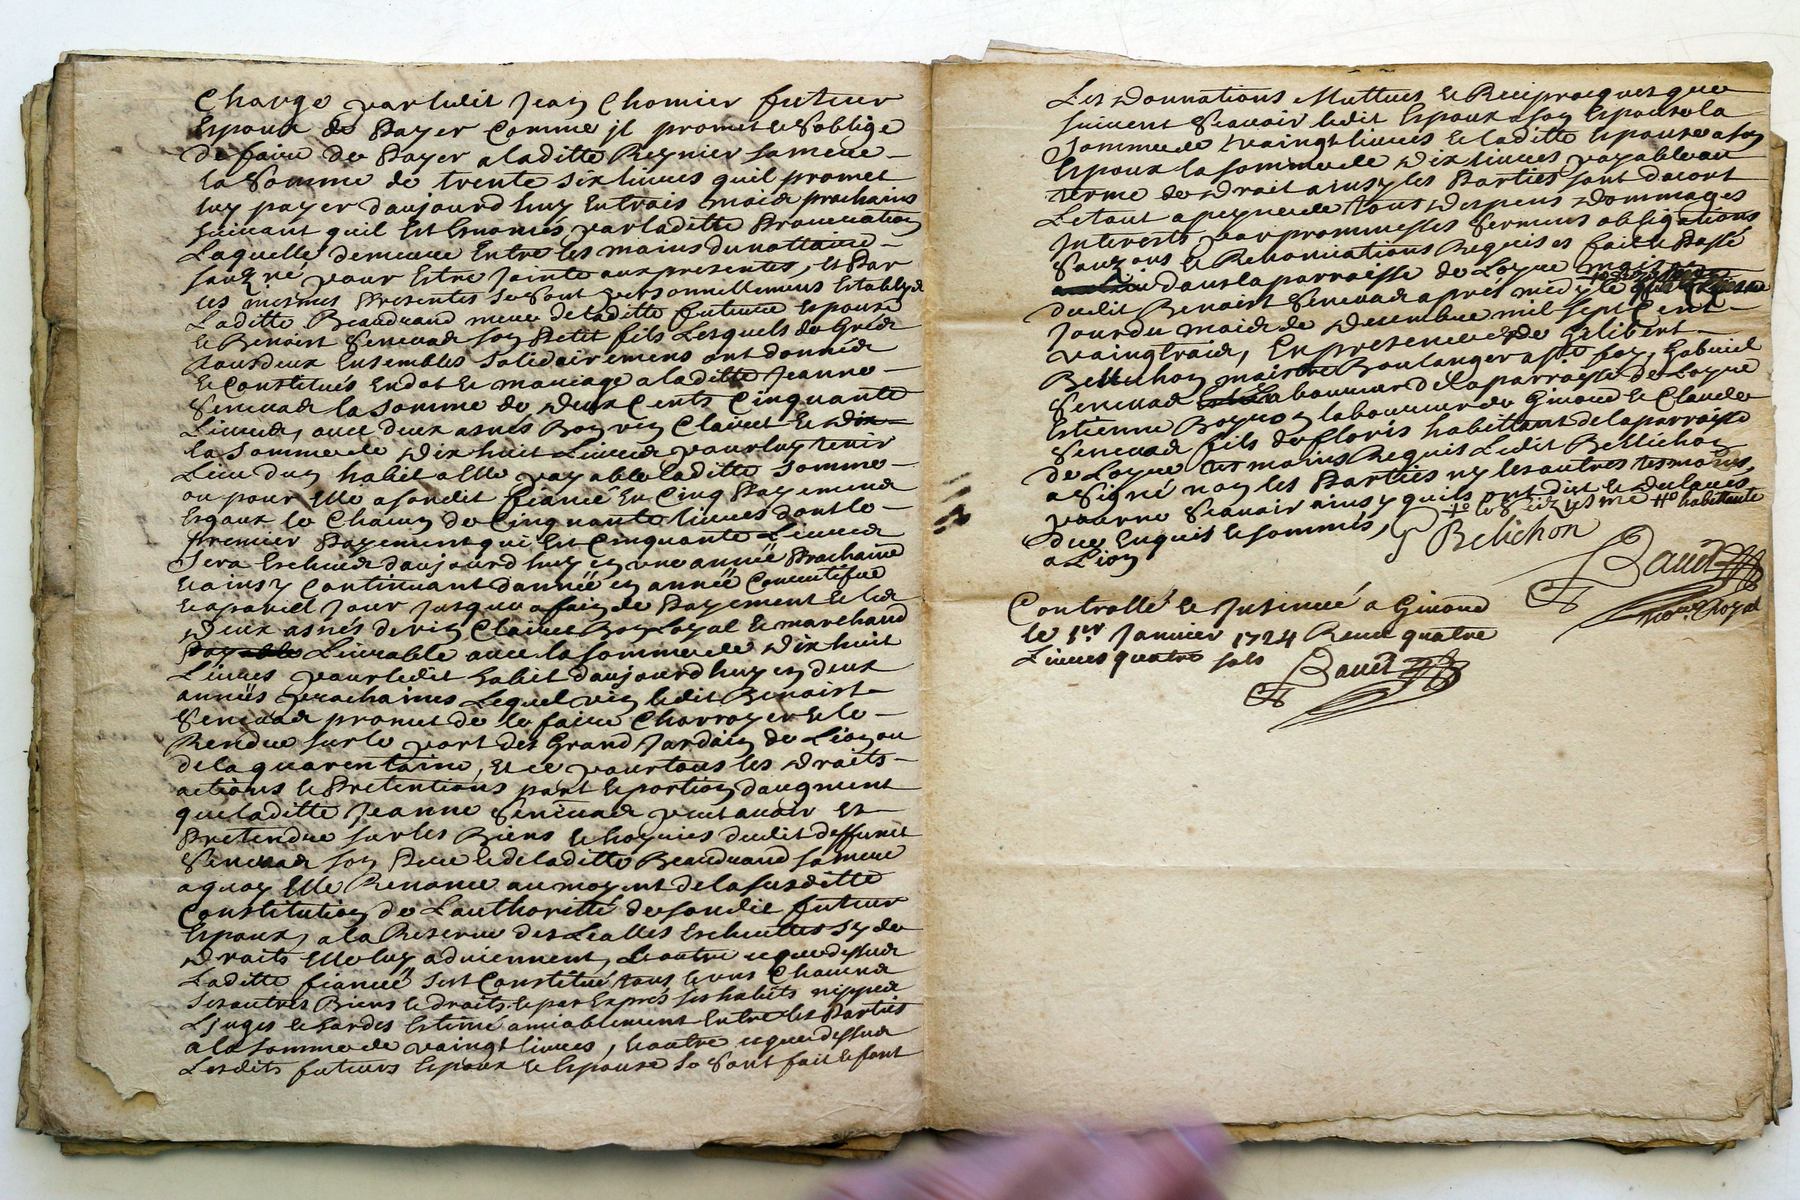 Charge par ledit Jean Chomier futeur
Espoux de Payer Comme jl promet et soblige
de faire de Payer a laditte Reynier sa mere
la Somme de trente six livres quil promet
luy payer daujourd huy En trois mois prochains
suivant quil Est Enoncés par laditte Procuration
Laquelle demeure Entre les mains du nottaire
souz.né pour Estre Jointe aux presentes, et Par
ces mesmes Presentes se sont personnellement Establye
Laditte Beaudrand mere de laditte future Espouse
et Benoist Senevas son Petit fils Lesquels de Grés
tous deux Ensembles Solidairement ont donnés
et Constitués En dot et mariage a laditte Jeanne
Senevas la somme de Deux Cents Cinquante
Livres, avec deux asnés Bon vin Clairet et dix
la Somme de dix huit Livres pour luy tenir
Lieu dun habit a elle payable laditte Somme
ou pour Elle a sondit fiancé En Cinq Payemens
Esgaux le Chacun de Cinquante livres dont le
Premier Payement qui Est Cinquante Livres
Sera Escheus daujourd huy en une année Prochaine
et ainsy Continuant dannée en année Consecutifve
et a pareil jour jusque a fin de Payement et les
Deux asnés de vin Clairet Bon Loyal et marchand
Livrable avec la somme de dix huit
Livres pour ledit habit daujourd huy en deux
annés prochaines Lequel vin ledit Benoist
Senevas promet de le faire Charroyer et le
Rendre sur le port des Grand Jardain de Lion ou
de la quarentaine, et ce pour tous les droits
actions et Pretentions part et portion daugment
que laditte Jeanne Senevas peut avoir et
Pretendre sur les Biens et hoyries dudit deffunct
Senevas son Pere et de laditte Beaudrand sa mere
a quoy Elle Renonce au moyent de la susditte
Constitution de Lauthoritté de sondit futeur
Espoux, a la Reserve des Loalles Escheuttes sy de
droits Elle luy adviennent, Et outre ce que dessus
Laditte fiancée sest Constitué tous et uns Chacuns
ses autres Biens et droits et par Exprés ses habits nippes
Linges et hardes Estimé amiablement Entre les Parties
a la somme de vaingt livres, Et outre ce que dessus
Lesdits futeurs Espoux et Espouse se sont fait et font
Les Donnations Muttues et Reciprocques que
suivent Scavoir ledit Espoux a son Espouse la
Somme de vaingt livres et laditte Espouse a son
Espoux la somme de dix livres payable au
terme de droit ainsy les Parties sont dacort
Le tout a peyne de tous despens dommages
Interests par prommesses sermens obligations
et Renonciations Requises fait et Passé
dans la parroisse de Loyre
dudit Benoist Senevas aprés midy le
Jour du mois de Decembre mil sept Cent
vaingtrois, En presence de Gilibert
Bellichon maistre Boulanger Gabriel
Senevas laboureur de la parroisse de Loyre
Estienne laboureur de Givord et Claude
Senevas fils de Floris habittant de la parroisse
de Loyre tesmoins Requis Ledit Bellichon
a Signé non les Parties ny les autres tesmoins
pour ne Scavoir ainsy quils ont dit et declarés
de ce Enquis et sommés, habittante
a Lion
Belichon
Baud
no.re Royal
Controllé et Insinué a Givord
le 1.er Janvier 1724 Receu quatre
Livres quatre sols
Baud